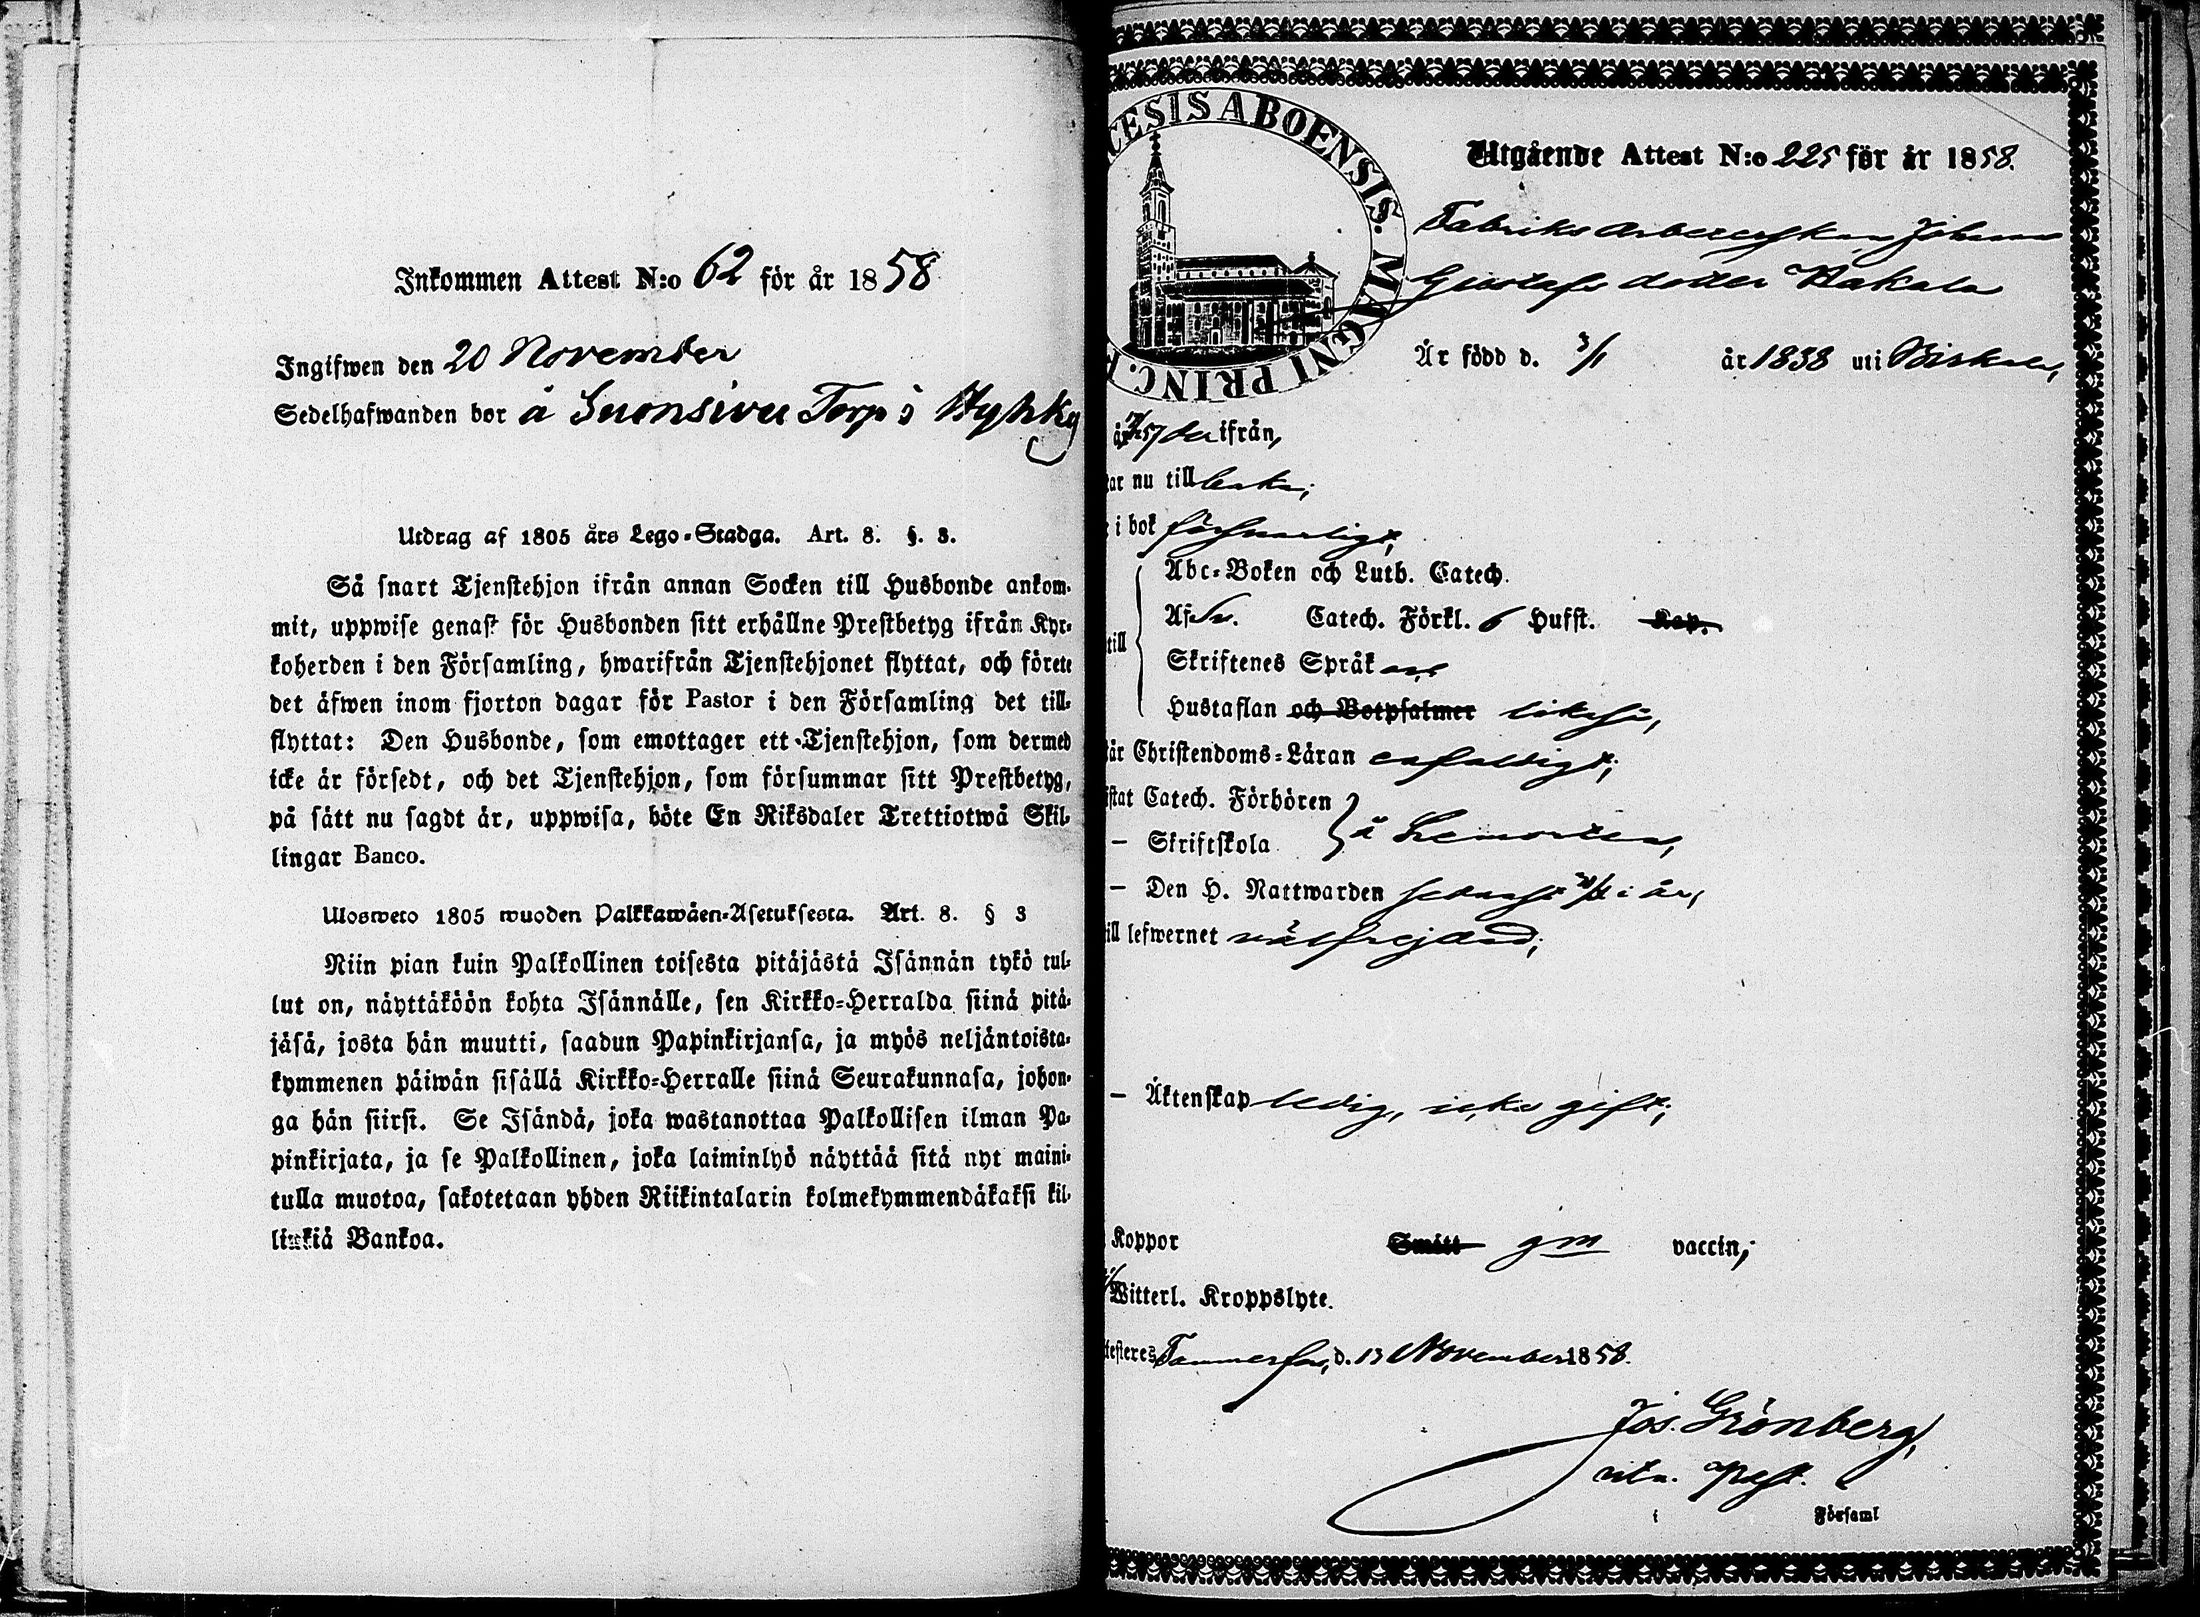 Inkommen Attest N:o 62 för år 1858
Ingifwen den 20 November
Sedelhafwanden bor å Suonsivu Torp i Hyhky
Utdrag af 1805 års Lego-Stadga. Art. 8. §. 3.
Så snart Tjenstehjon ifrån annan Socken till Husbonde ankom-
mit, uppwise genast för Husbonden sitt erhållne Prestbetyg ifrån Kyr-
koherden i den Församling, hwarifrån Tjenstehjonet flyttat, och förete
det äfwen inom fjorton dagar för Pastor i den Församling det till-
flyttat: Den Husbonde, som emottager ett Tjenstehjon, som dermed
icke är försedt, och det Tjenstehjon, som försummar sitt Prestbetyg,
på sätt nu sagdt är, uppwisa, böte En Riksdaler Trettiotwå Skil-
lingar Banco.
Ulosweto 1805 wuoden Palkkawäen-Asetuksesta. Art. 8. § 3
Niin pian kuin Palkollinen toisesta pitäjästä Isännän tykö tul-
lut on, näyttäköön kohta Isännälle, sen Kirkko-Herralda siinä pitä-
jäsä, josta hän muutti, saadun Papinkirjansa, ja myös neljäntoista-
kymmenen päiwän sisällä Kirkko-Herralle siinä Seurakunnasa, johon-
ga hän siirsi. Se Isändä, joka wastanottaa Palkollisen ilman Pa-
pinkirjata, ja se Palkollinen, joka laiminlyö näyttää sitä nyt maini-
tulla muotoa, sakotetaan yhden Riikintalarin kolmekymmendäkaksi kil-
linkiä Bankoa.
CESIS ABOENSIS. MAGNI PRINC.
Utgående Attest N:o 225 för år 1858.
Fabriks arbeterskan Johanna
Gustafs dotter Hakala
Är född d. 3/1 år 1838 uti Birkala,
57 der ifrån,
tar nu tillbaka;
i bok försvarligt,
Abc-Boken och Luth. Catech.
Af Sv. Catech. Förkl. 6 Hufst. Kap.
till
Skriftenes Språk
Hustaflan och Botpsalmer likaså,
är Christendoms-Läran enfaldigt;
istat Catech. Förhören
– Skriftskola å Lemorten,
– Den H. Nattwarden senast i år,
ill lefwernet välfrejdad;
– Äktenskap ledig, icke gift;
Koppor Smått gm vaccin;
Witterl. Kroppslyte.
testeres Tammerfors, d. 13 November 1858.
Jos. Grönberg,
vitn. Past.
i Församl